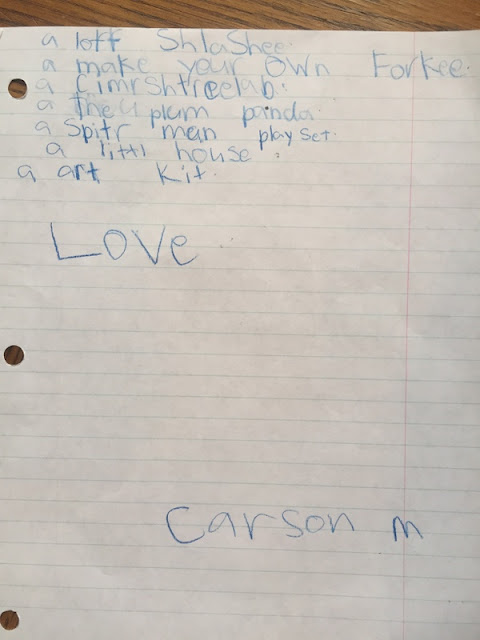 a loff ShlaShee.
a make your own Forkee.
a Cimrshtreelab.
a theu plum panda.
a Spitr man play set.
a litti house.
a art kit.
Love
Carson m